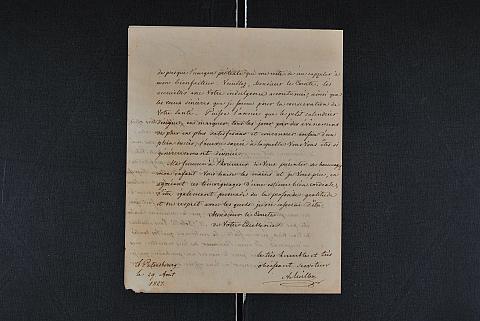 de presque l'unique prétexte qui me reste de me rappeler à
mon bienfaiteur. Veuillez, Monsieur le Comte, les
accueillir avec Votre indulgence accoutumée, ainsi que
les vœux sincères que je forme pour la conservation de
Votre santé. Puisse l'année que le petit calendrier
désigne, en marquer tous les jours par des évènemens
de plus en plus satisfaisans et couronner enfin d'un
plein succès, l'œuvre sacrée à laquelle Vous Vous êtes si
généreusement dévoué.
Ma femme a l'honneur de Vous présenter ses hommages,
mon enfant Vous baise les mains et je Vous prie, en
agréant ces témoignages d'une estime bien cordiale,
d'être également persuadé de la profonde gratitude
et du respect avec lesquels j'ai l'honneur d'être
Monsieur le Comte
de Votre Excellence
le très humble et très
obéissant serviteur
St Petersbourg
le 29 Août
1827.